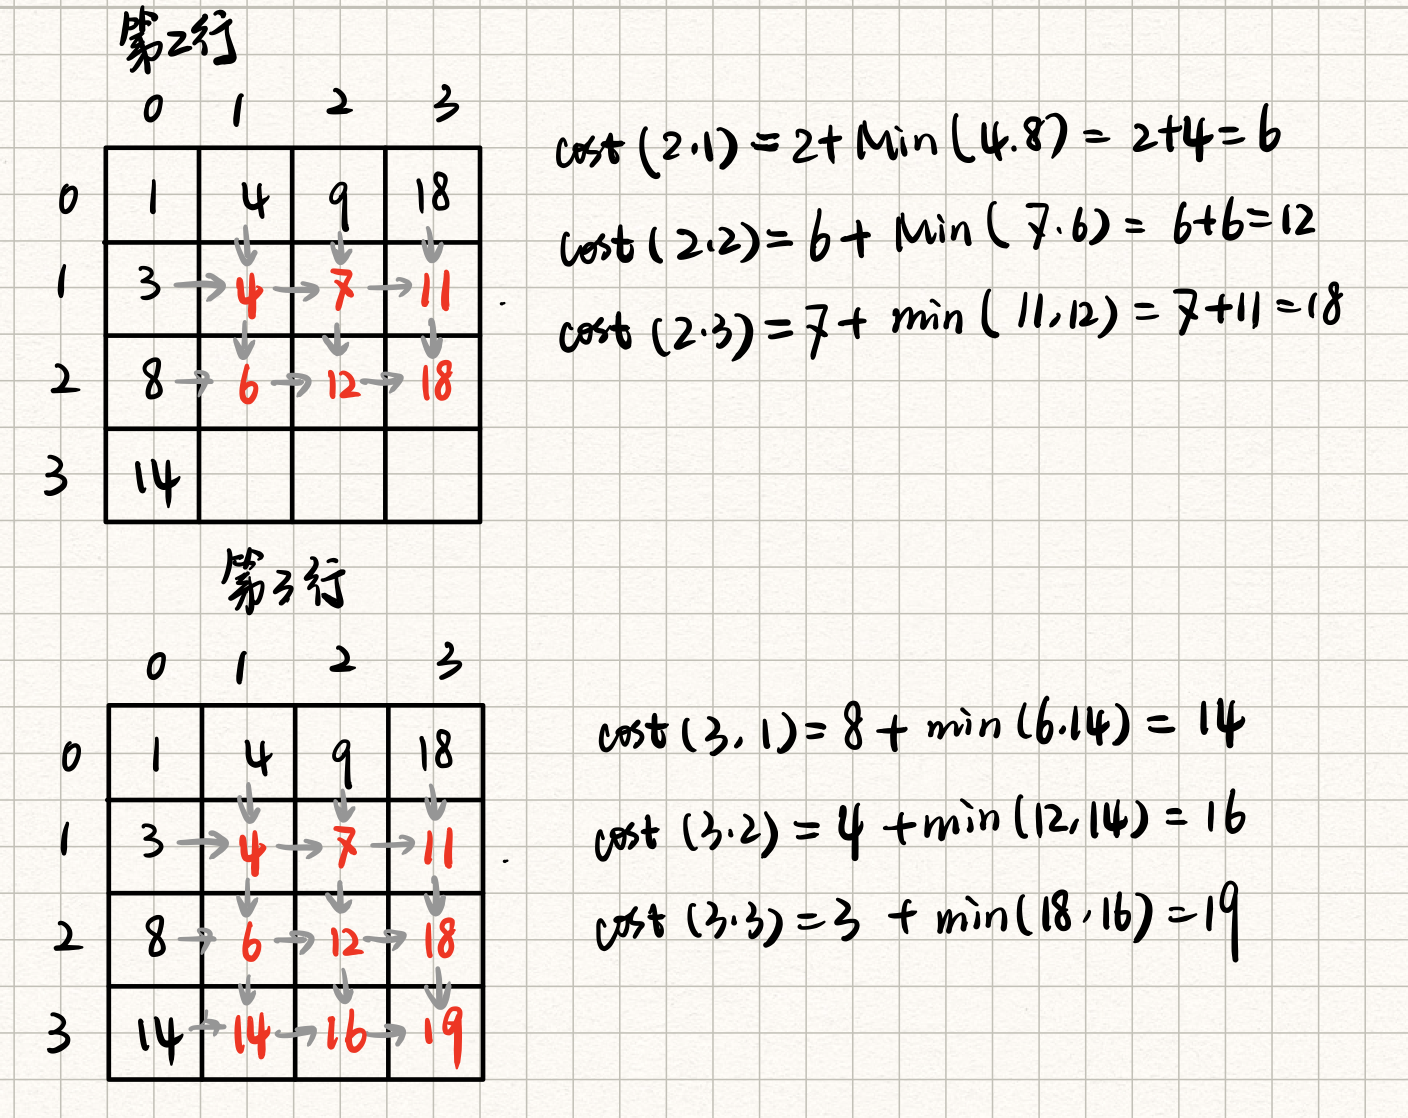 第2行
0 1 2 3
0 1 4 9 18
1 3 4 7 11
2 8 6 12 18
3 14
cost(2.1)=2+Min(4.8)=2+4=6
cost(2.2)=6+Min(7.6)=6+6=12
cost(2.3)=7+min(11,12)=7+11=18
第3行
0 1 2 3
0 1 4 9 18
1 3 4 7 11
2 8 6 12 18
3 14 14 16 19
cost(3,1)=8+min(6.14)=14
cost(3.2)=4+min(12,14)=16
cost(3.3)=3+min(18,16)=19